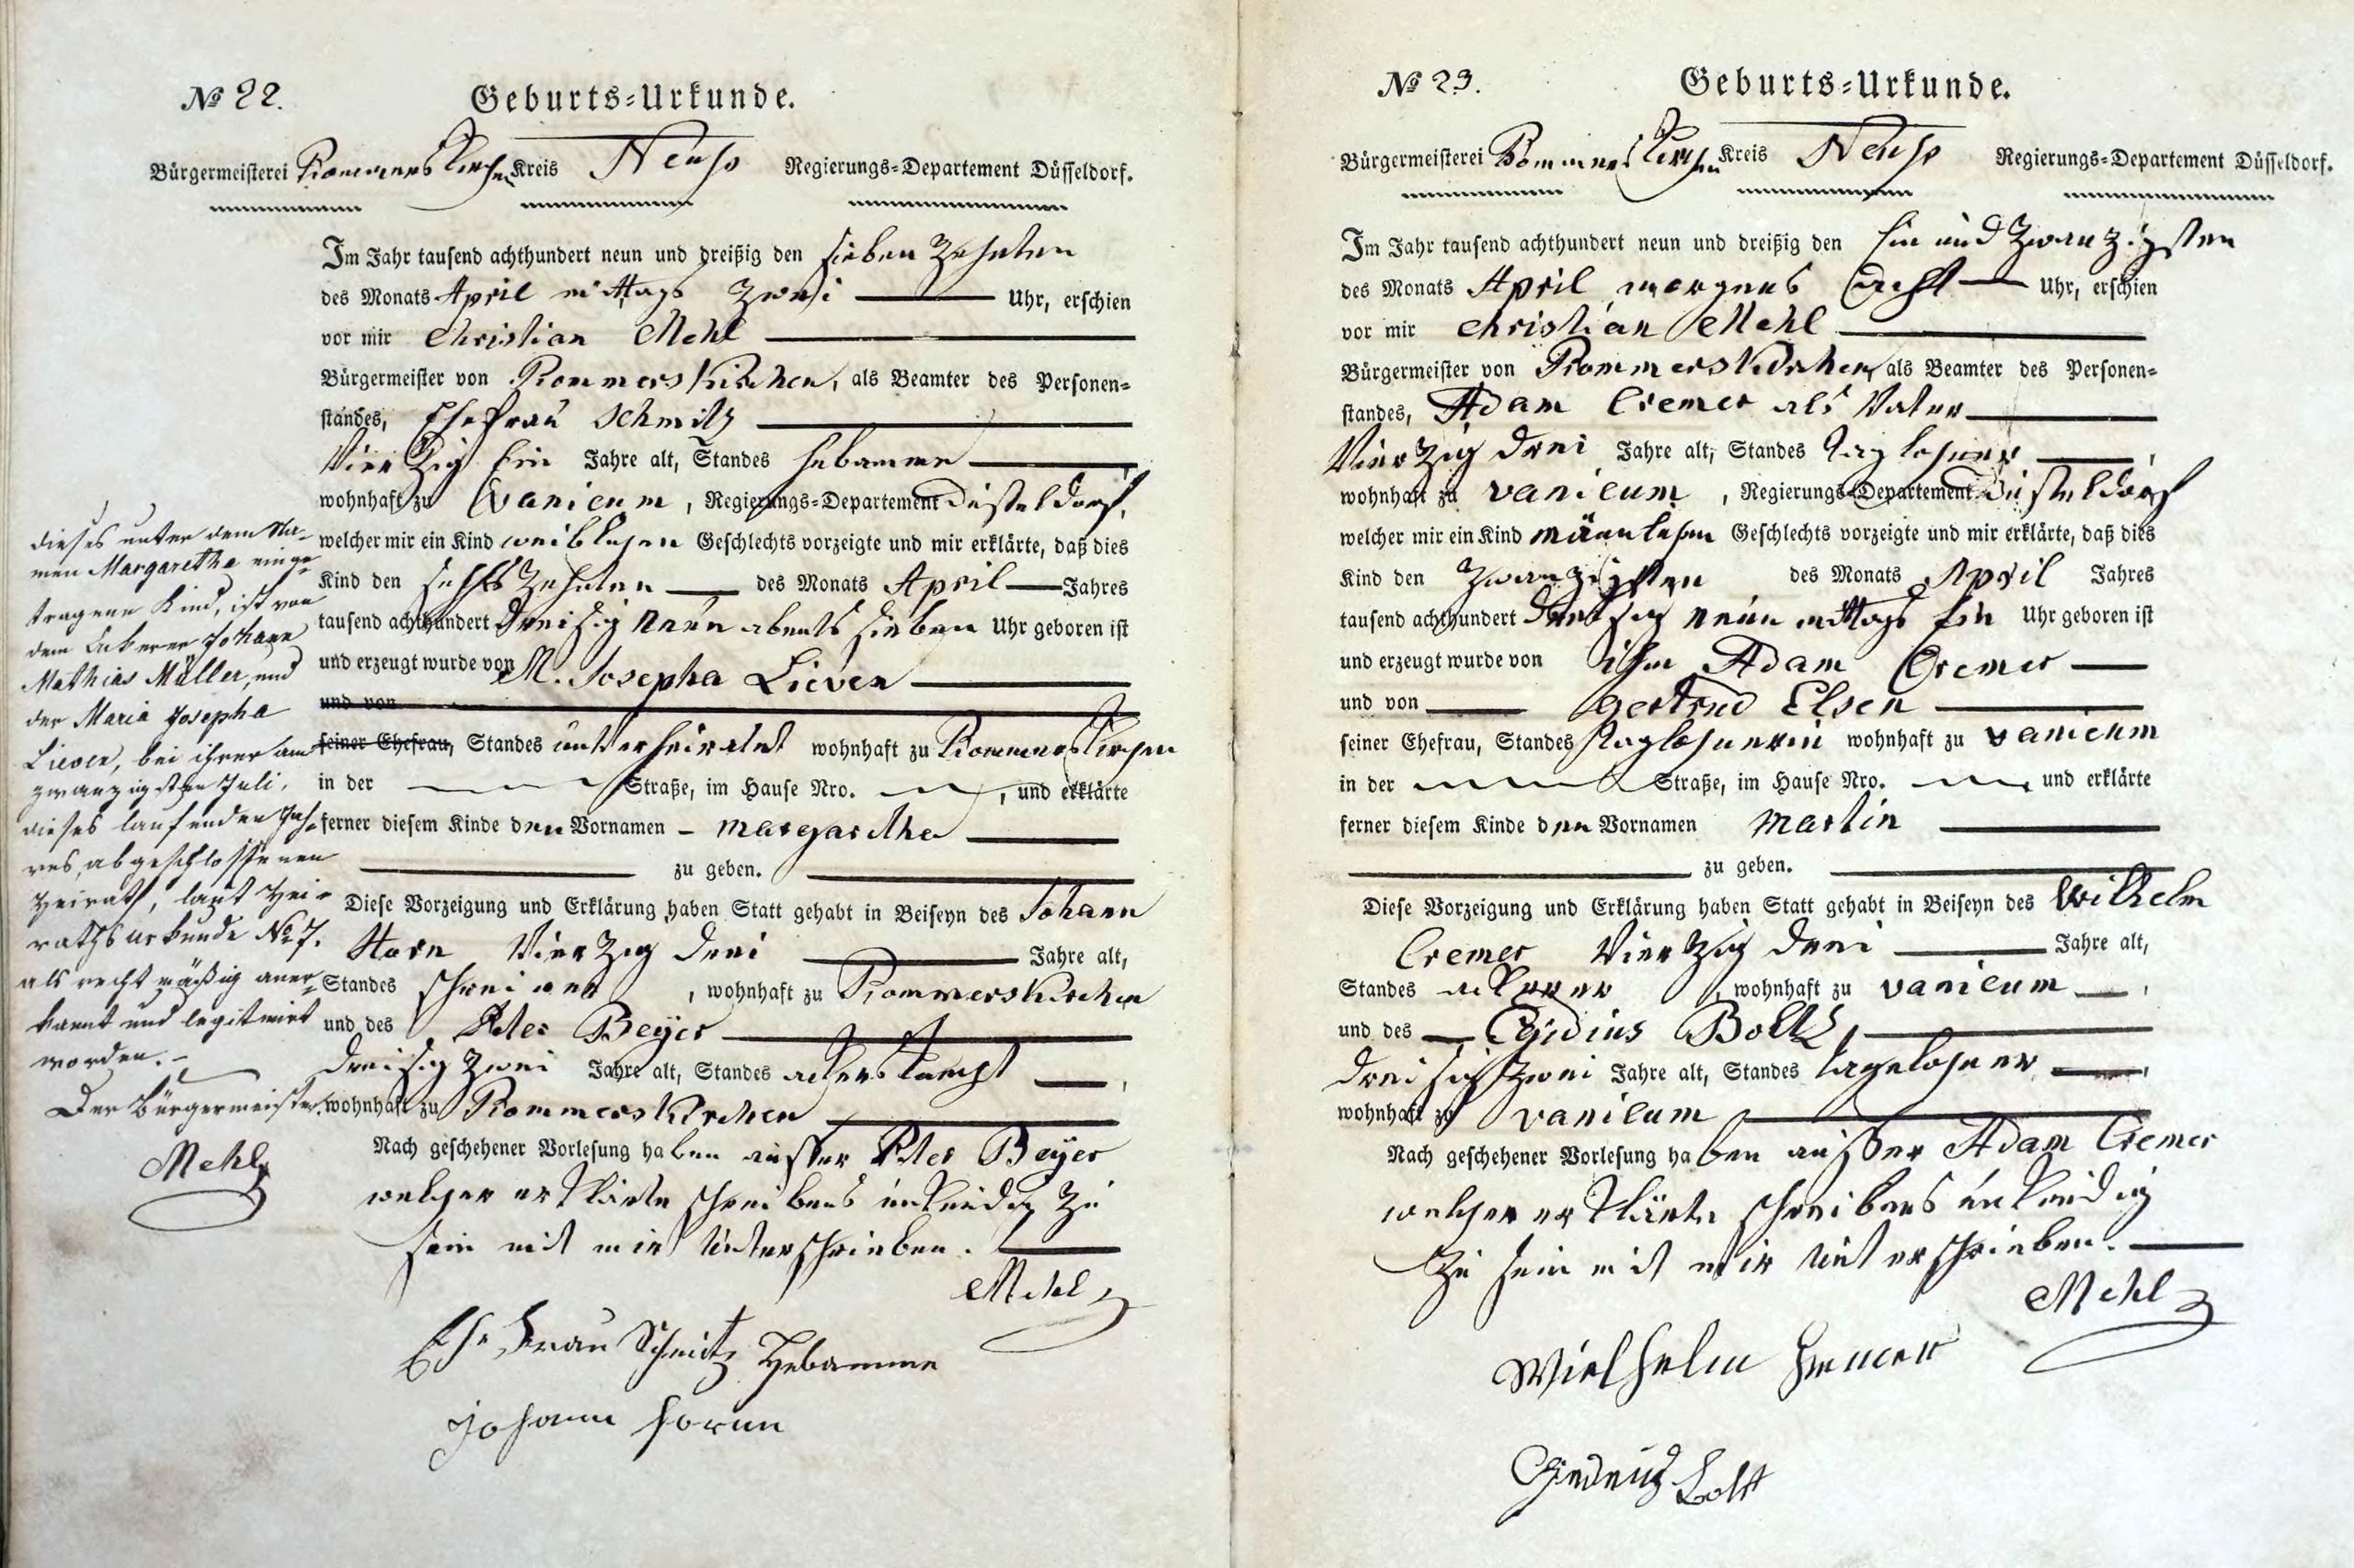 № 22.
Geburts-Urkunde.
Bürgermeisterei Rommerskirchen Kreis Neuss Regierungs-Departement Düsseldorf.
Im Jahr tausend achthundert neun und dreißig den sieben zehnten
des Monats April mittags zwei Uhr, erschien
vor mir Christian Mehl
Bürgermeister von Rommerskirchen, als Beamter des Personen-
standes, Ehefrau Schmitz
Vierzig Ein Jahre alt, Standes Hebamme
wohnhaft zu Vanicum, Regierungs-Departement Düsseldorf,
welcher mir ein Kind weiblichen Geschlechts vorzeigte und mir erklärte, daß dies
Kind den sechszehnten des Monats April Jahres
tausend achthundert dreisig neun abents sieben Uhr geboren ist
und erzeugt wurde von M. Josepha Lieven
und von
seiner Ehefrau, Standes unverheiratet wohnhaft zu Rommerskirchen
in der Straße, im Hause Nro. , und erklärte
ferner diesem Kinde den Vornamen - Margarethe
zu geben.
Diese Vorzeigung und Erklärung haben Statt gehabt in Beiseyn des Johann
Horn Vierzig drei Jahre alt,
Standes Schreiner, wohnhaft zu Rommerskirchen
und des Peter Beyer
dreisig zwei Jahre alt, Standes Ackersknecht,
wohnhaft zu Rommerskirchen
Nach geschehener Vorlesung haben ausser Peter Beyer
welcher erklärte schreibens unkundig zu
sein mit mir unterschrieben.
Mehl
Ehe Frau Schmitz Hebamme
Johann Horn
dieses unter dem Na-
men Margaretha einge-
tragene Kind, ist von
dem Ackerer Johann
Mathias Müller, und
der Maria Josepha
Lieven, bei ihrer am
zwanzigsten Juli,
dieses laufenden Jah-
res, abgeschlossenen
Heirath, laut Hei-
rathsurkunde № 7.
als rechtmäßig aner-
kannt und legitimirt
worden. -
Der Bürgermeister.
Mehl
№ 23.
Geburts-Urkunde.
Bürgermeisterei Rommerskirchen Kreis Neuss Regierungs-Departement Düsseldorf.
Im Jahr tausend achthundert neun und dreißig den Ein und zwanzigsten
des Monats April morgens acht Uhr, erschien
vor mir Christian Mehl
Bürgermeister von Rommerskirchen, als Beamter des Personen-
standes, Adam Cremer als Vater
Vierzig drei Jahre alt, Standes Taglohner
wohnhaft zu Vanicum, Regierungs-Departement Düsseldorf
welcher mir ein Kind männlichen Geschlechts vorzeigte und mir erklärte, daß dies
Kind den zwanzigsten des Monats April Jahres
tausend achthundert dreisig neun mittags Ein Uhr geboren ist
und erzeugt wurde von ihm Adam Cremer
und von Gertrud Elsen
seiner Ehefrau, Standes Taglohnerin wohnhaft zu Vanicum
in der Straße, im Hause Nro. und erklärte
ferner diesem Kinde den Vornamen Martin
zu geben.
Diese Vorzeigung und Erklärung haben Statt gehabt in Beiseyn des Wilhelm
Cremer Vierzig drei Jahre alt,
Standes Ackerer, wohnhaft zu Vanicum,
und des Egidius Boltz
dreisig zwei Jahre alt, Standes Tagelohner,
wohnhaft zu Vanicum
Nach geschehener Vorlesung haben ausser Adam Cremer
welcher erklärte schreibens unkundig
zu sein mit mir unterschrieben.
Mehl
Wielhelm Cremer